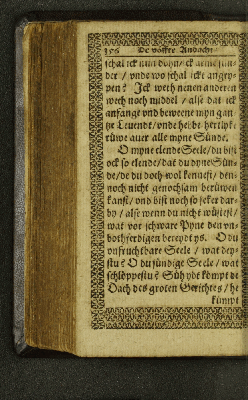 356 De voffte Andacht
schal ick nun dohn / ick arme sun-
der / vnde wo schal ickt angry-
pen? Ick weth nenen anderen
wech noch middel / alse dat ick
anfange vnd beweene myn gan-
tze Levendt / vnde hebbe hertlyke
rüwe auer alle myne Sünde.
O myne elende Seele / du bist
ock so elende / dat du dyne Sün-
de / de du doch wol kennest / den-
noch nicht genochsam berüwen
kanst / vnd bist noch so seker dar-
by / alse wenn du nicht wüstest /
wat vor schware Pyne den vn-
bothferdigen bereydt ys. O du
vnfruchtbare Seele / wat dey-
stu? O du sündige Seele / wat
schlöppestu? Süh ydt kömpt de
Dach des groten Gerichtes / he
kümpt